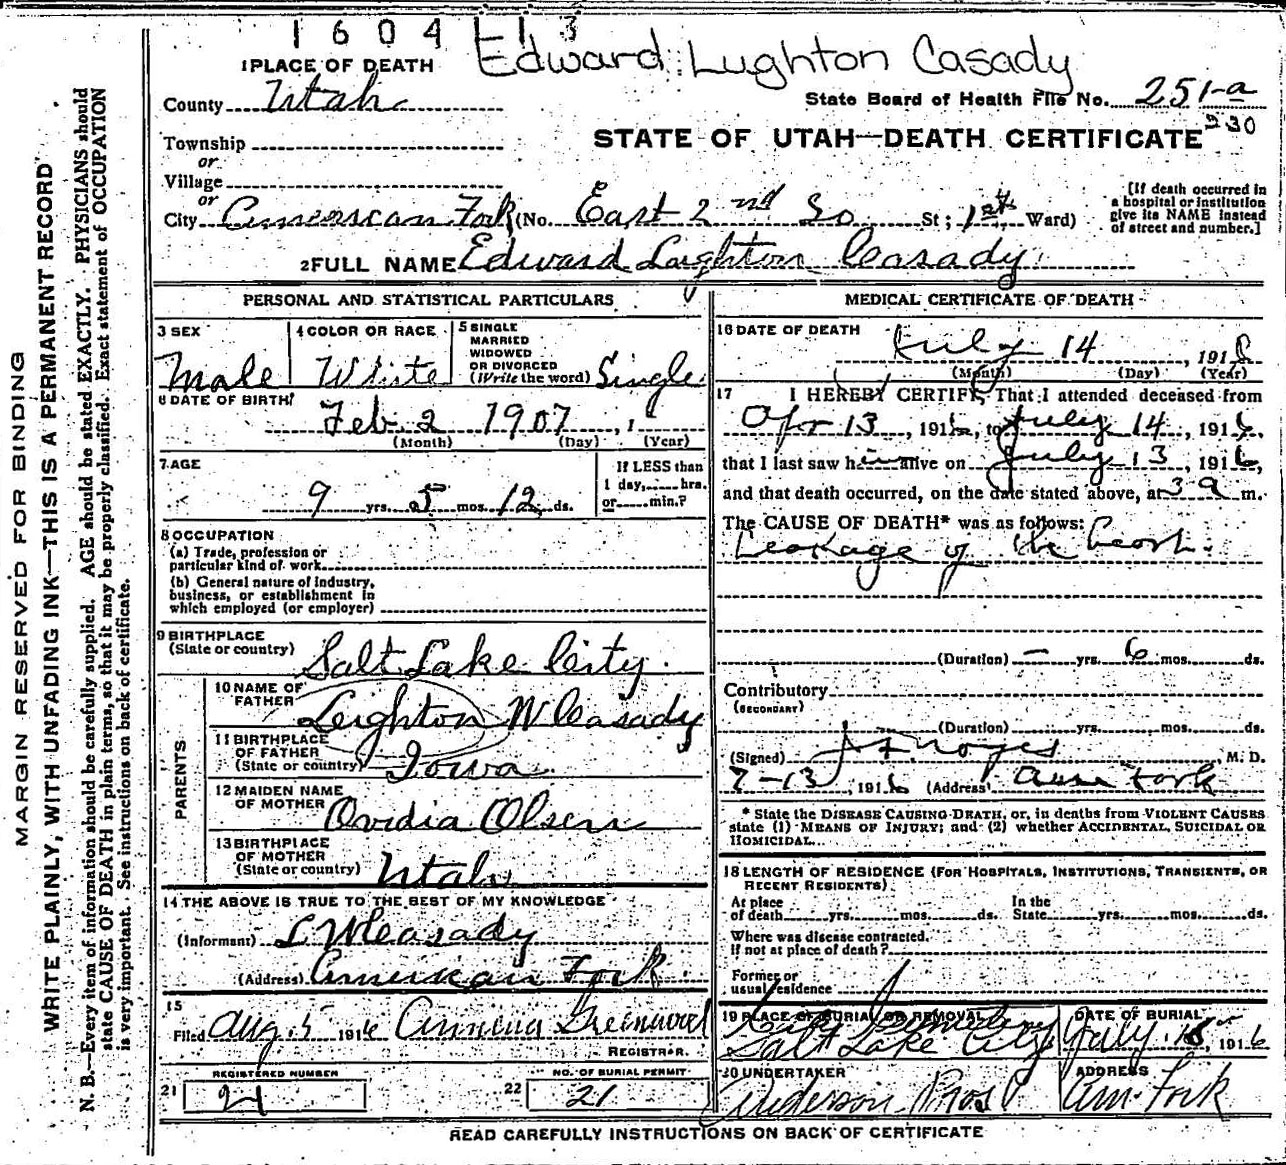 1 6 0 4 1 1 3
Edward Lughton Casady
1 PLACE OF DEATH
County Utah
State Board of Health File No. 251-a
930
STATE OF UTAH—DEATH CERTIFICATE
Township
or
Village
or
City American Fork (No. East 2nd So St; 1st Ward)
[If death occurred in
a hospital or institution
give its NAME instead
of street and number.]
2 FULL NAME Edward Leighton Casady
PERSONAL AND STATISTICAL PARTICULARS
3 SEX
Male
4 COLOR OR RACE
White
5 SINGLE
MARRIED
WIDOWED
OR DIVORCED
(Write the word) Single
6 DATE OF BIRTH
Feb. 2 1907, 1
(Month) (Day) (Year)
7 AGE
9 yrs. 5 mos. 12 ds.
If LESS than
1 day, hrs.
or min.?
8 OCCUPATION
(a) Trade, profession or
particular kind of work
(b) General nature of industry,
business, or establishment in
which employed (or employer)
9 BIRTHPLACE
(State or country) Salt Lake City.
PARENTS
10 NAME OF
FATHER Leighton W Casady
11 BIRTHPLACE
OF FATHER
(State or country) Iowa
12 MAIDEN NAME
OF MOTHER Ovidia Olsen
13 BIRTHPLACE
OF MOTHER
(State or country) Utah
14 THE ABOVE IS TRUE TO THE BEST OF MY KNOWLEDGE
(Informant) L W Casady
(Address) American Fork
15
Filed Aug. 5 1916 Greenwood
REGISTRAR.
REGISTERED NUMBER
21 21
NO. OF BURIAL PERMIT
22 21
MEDICAL CERTIFICATE OF DEATH
16 DATE OF DEATH
July 14, 191
(Month) (Day) (Year)
17 I HEREBY CERTIFY, That I attended deceased from
Apr 13, 1916, to July 14, 1916,
that I last saw him alive on July 13, 1916,
and that death occurred, on the date stated above, at 3 a m.
The CAUSE OF DEATH* was as follows:
Leakage of the heart.
(Duration) — yrs. 6 mos. ds.
Contributory
(SECONDARY)
(Duration) yrs. mos. ds.
(Signed) Noyes M. D.
7-13, 1916 (Address) Am Fork
* State the DISEASE CAUSING DEATH, or, in deaths from VIOLENT CAUSES
state (1) MEANS OF INJURY; and (2) whether ACCIDENTAL, SUICIDAL OR
HOMICIDAL.
18 LENGTH OF RESIDENCE (FOR HOSPITALS, INSTITUTIONS, TRANSIENTS, OR
RECENT RESIDENTS)
At place
of death yrs. mos. ds.
In the
State yrs. mos. ds.
Where was disease contracted,
if not at place of death?
Former or
usual residence
19 PLACE OF BURIAL OR REMOVAL
City Cemetery
Salt Lake City
DATE OF BURIAL
July 1916
20 UNDERTAKER
Anderson Bros
ADDRESS
Am. Fork
READ CAREFULLY INSTRUCTIONS ON BACK OF CERTIFICATE
MARGIN RESERVED FOR BINDING
WRITE PLAINLY, WITH UNFADING INK—THIS IS A PERMANENT RECORD
N. B.—Every item of information should be carefully supplied. AGE should be stated EXACTLY. PHYSICIANS should
state CAUSE OF DEATH in plain terms, so that it may be properly classified. Exact statement of OCCUPATION
is very important. See instructions on back of certificate.